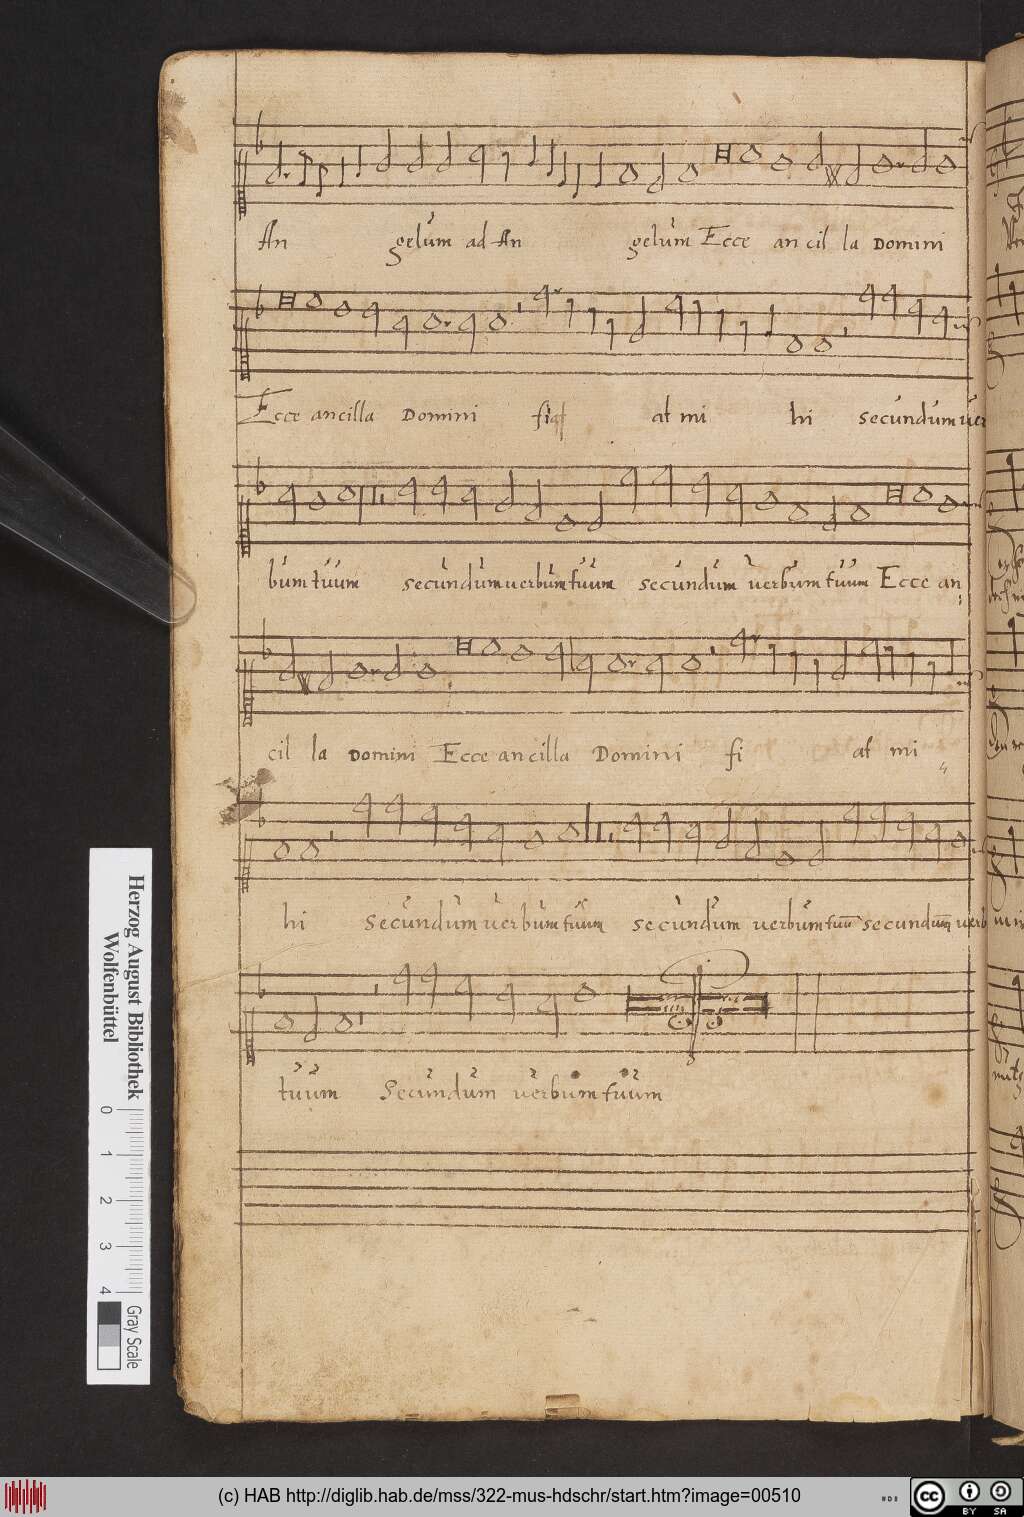 An gelum ad An gelum Ecce an cil la Domini
Ecce ancilla Domini fiat at mi hi secundum ver
bum tuum secundum verbum tuum secundum verbum tuum Ecce an
cil la Domini Ecce ancilla Domini fi at mi
hi secundum verbum tuum secundum verbum tuū secundum verb
tuum Secundum verbum tuum
Herzog August Bibliothek
Wolfenbüttel
0 1 2 3 4
Gray Scale
(c) HAB http://diglib.hab.de/mss/322-mus-hdschr/start.htm?image=00510
cc BY SA